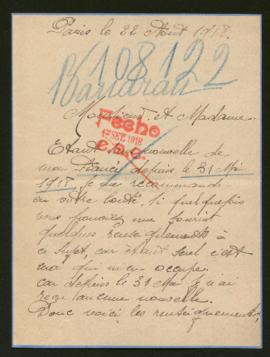 Paris le 22 Aout 1918.
108122
Monsieur et Madame.
Fecho
SEP. 1918
Etant sans nouvelle de
mon Fiancé depuis le 31 Mai
1918, je me recommande
en votre bonté, si quelquefois
vous pouviez me fournir
quelques renseignements à
ce sujet, car étant seul c'est
moi qui m'en occupe
car depuis le 31 Mai je n'ai
reçu aucune nouvelle.
Donc voici les renseignements,